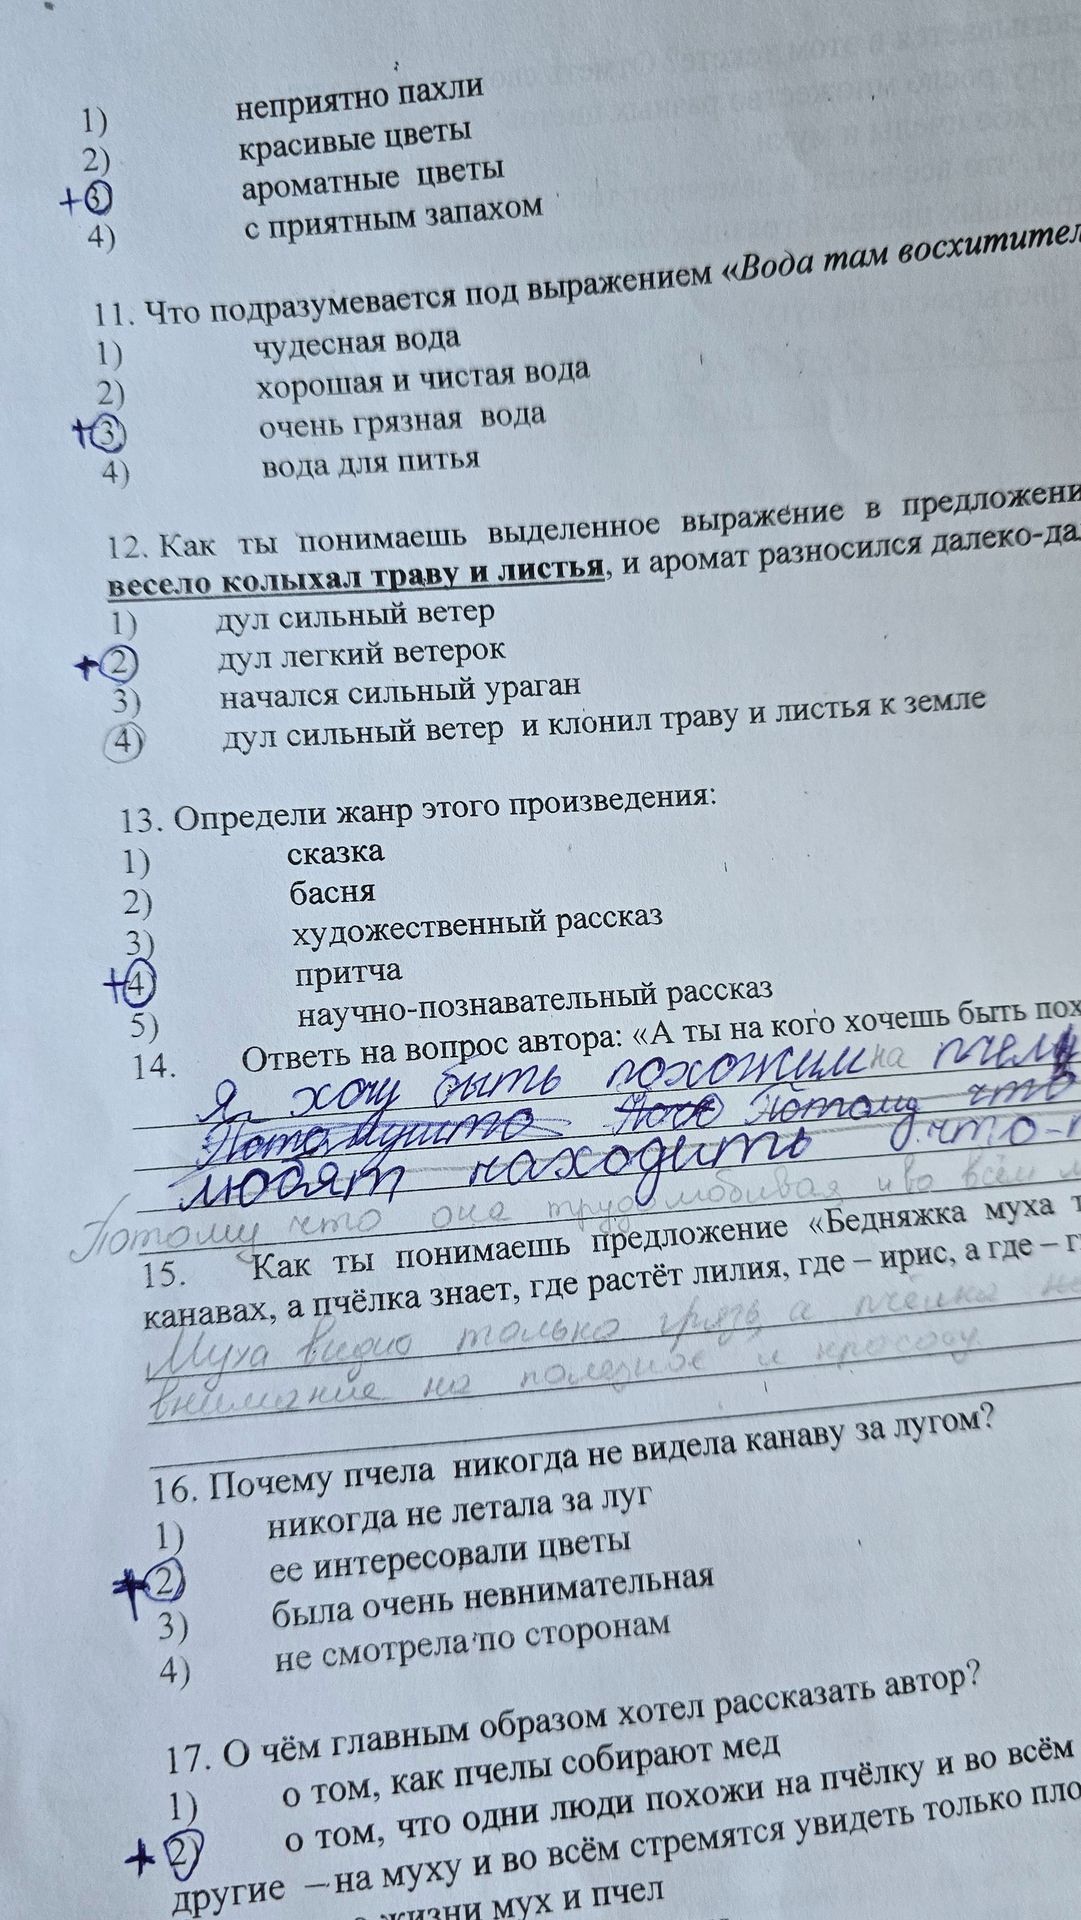 1) неприятно пахли
2) красивые цветы
+ 3) ароматные цветы
4) с приятным запахом
11. Что подразумевается под выражением «Вода там
1) чудесная вода
2) хорошая и чистая вода
+ 3) очень грязная вода
4) вода для питья
12. Как ты понимаешь выделенное выражение в
весело колыхал траву и листья, и аромат разносился
1) дул сильный ветер
+ 2) дул легкий ветерок
3) начался сильный ураган
4) дул сильный ветер и клонил траву и листья к земле
13. Определи жанр этого произведения:
1) сказка
2) басня
3) художественный рассказ
+ 4) притча
5) научно-познавательный рассказ
14. Ответь на вопрос автора: «А ты на кого хочешь быть
Я хочу быть похожим на
Потому что
любят находить что-
Потому что она трудолюбивая и во всём
15. Как ты понимаешь предложение «Бедняжка муха
канавах, а пчёлка знает, где растёт лилия, где – ирис, а где –
Муха видио только грязь а пчёлка
внимание на полезное и красоту
16. Почему пчела никогда не видела канаву за лугом?
1) никогда не летала за луг
+ 2) ее интересовали цветы
3) была очень невнимательная
4) не смотрела по сторонам
17. О чём главным образом хотел рассказать автор?
1) о том, как пчелы собирают мед
+ 2) о том, что одни люди похожи на пчёлку и во всём
другие – на муху и во всём стремятся увидеть только
жизни мух и пчел